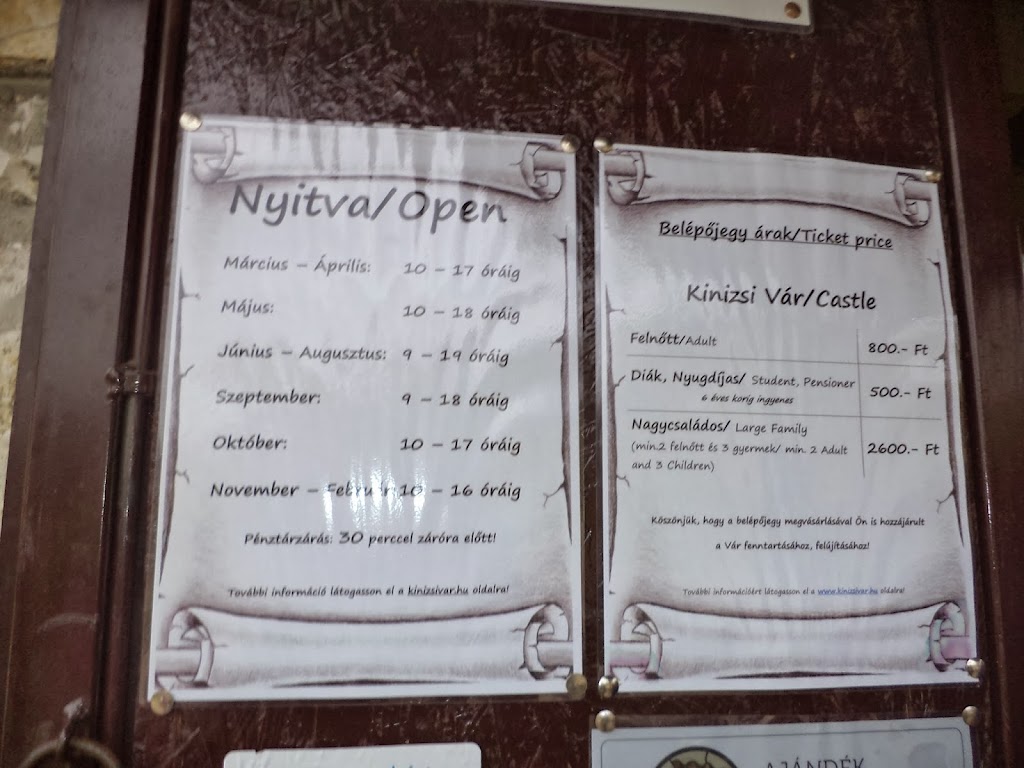 Nyitva/Open
Március – Április: 10 – 17 óráig
Május: 10 – 18 óráig
Június – Augusztus: 9 – 19 óráig
Szeptember: 9 – 18 óráig
Október: 10 – 17 óráig
November – Február: 10 – 16 óráig
Pénztárzárás: 30 perccel záróra előtt!
További információ látogasson el a kinizsivar.hu oldalra!
Belépőjegy árak/Ticket price
Kinizsi Vár/Castle
Felnőtt/Adult 800.- Ft
Diák, Nyugdíjas/ Student, Pensioner 500.- Ft
6 éves korig ingyenes
Nagycsaládos/ Large Family 2600.- Ft
(min.2 felnőtt és 3 gyermek/ min. 2 Adult
and 3 Children)
Köszönjük, hogy a belépőjegy megvásárlásával Ön is hozzájárult
a Vár fenntartásához, felújításához!
További információért látogasson el a www.kinizsivar.hu oldalra!
AJÁNDÉK